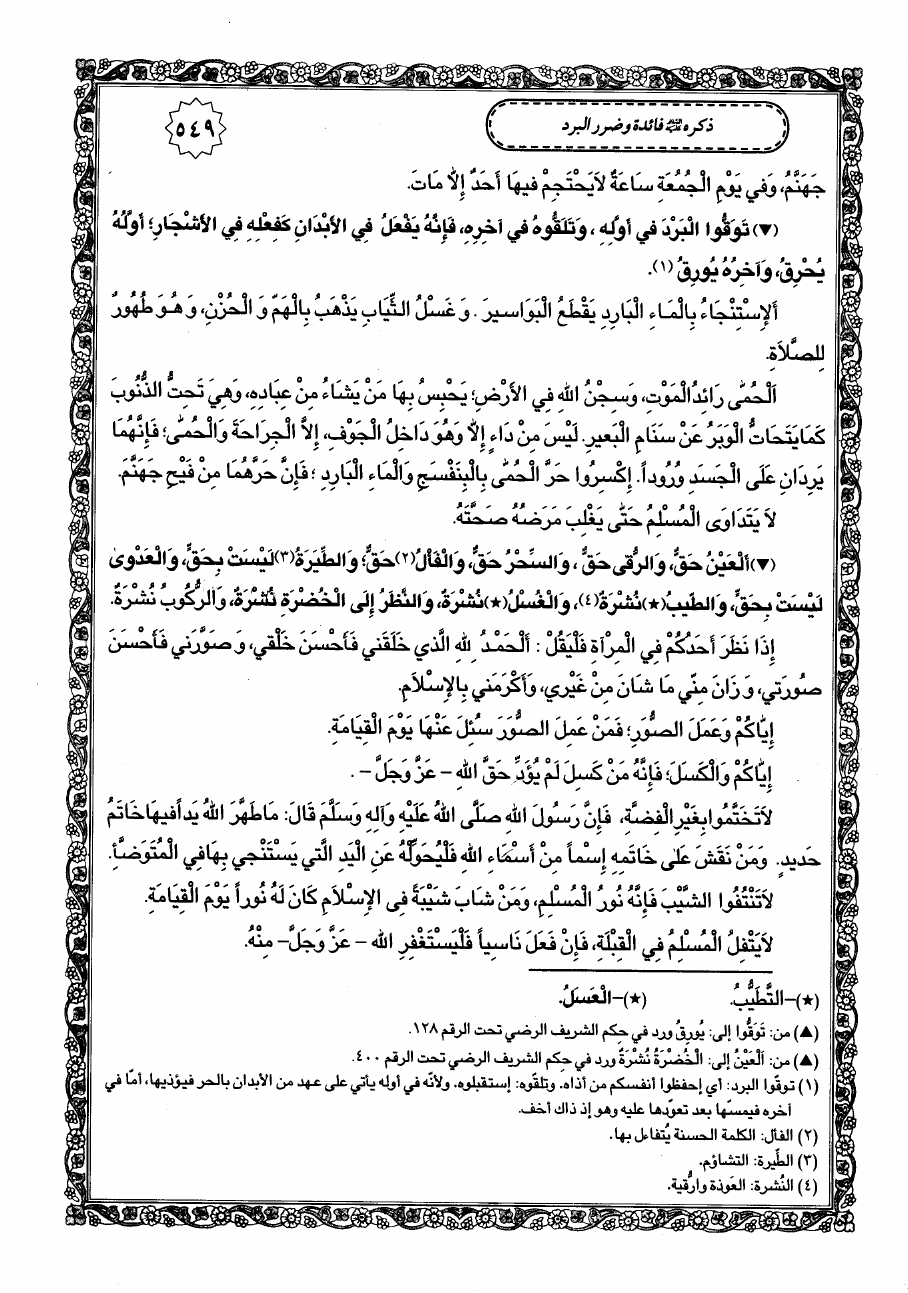 ذكره ﷺ فائدة وضرر البرد
٥٤٩
جَهَنَّمُ، وَفي يَوْمِ الْجُمُعَةِ سَاعَةٌ لاَيَحْتَجِمْ فيهَا أَحَدٌ إِلاَّ مَاتَ.
(▼) تَوَقُّوا الْبَرْدَ في أَوَّلِهِ ، وَتَلَقُّوهُ في آخِرِهِ، فَإِنَّهُ يَفْعَلُ فِي الأَبْدَانِ كَفِعْلِهِ فِي الأَشْجَارِ؛ أَوَّلُهُ
يُحْرِقُ، وَآخِرُهُ يُورِقُ (١).
أَلإِسْتِنْجَاءُ بِالْمَاءِ الْبَارِدِ يَقْطَعُ الْبَوَاسيرَ . وَ غَسْلُ الثِّيَابِ يَذْهَبُ بِالْهَمِّ وَ الْحُزْنِ، وَ هُوَ طَهُورٌ
لِلصَّلاَةِ.
اَلْحُمّى رَائِدُ الْمَوْتِ، وَسِجْنُ اللهِ فِي الأَرْضِ؛ يَحْبِسُ بِهَا مَنْ يَشَاءُ مِنْ عِبَادِهِ، وَهِيَ تَحِتُّ الذُّنُوبَ
كَمَا يَتَحَاتُّ الْوَبَرُ عَنْ سَنَامِ الْبَعيرِ. لَيْسَ مِنْ دَاءٍ إِلاَّ وَهُوَ دَاخِلُ الْجَوْفِ، إِلاَّ الْجِرَاحَةَ وَالْحُمّى؛ فَإِنَّهُمَا
يَرِدَانِ عَلَى الْجَسَدِ وُرُوداً. إِكْسِرُوا حَرَّ الْحُمّى بِالْبَنَفْسَجِ وَالْمَاءِ الْبَارِدِ ؛ فَإِنَّ حَرَّهُمَا مِنْ فَيْحِ جَهَنَّمَ.
لاَ يَتَدَاوَى الْمُسْلِمُ حَتّى يَغْلِبَ مَرَضُهُ صِحَّتَهُ.
(▼) أَلْعَيْنُ حَقٌّ، وَالرُّقى حَقٌّ ، وَالسِّحْرُ حَقٌّ، وَالْفَألُ(٢) حَقٌّ؛ وَالطِّيَرَةُ(٣) لَيْسَتْ بِحَقٍّ، وَالْعَدْوى
لَيْسَتْ بِحَقٍّ، وَالطّيبُ(★) نُشْرَةٌ(٤)، وَالْغُسْلُ(★) نُشْرَةٌ، وَالنَّظَرُ إِلَى الْخُضْرَةِ نُشْرَةٌ، وَالرُّكُوبُ نُشْرَةٌ.
إِذَا نَظَرَ أَحَدُكُمْ فِي الْمِرْآةِ فَلْيَقُلْ : أَلْحَمْدُ لِلهِ الَّذي خَلَقَني فَأَحْسَنَ خَلْقي، وَ صَوَّرَني فَأَحْسَنَ
صُورَتي، وَ زَانَ مِنّي مَا شَانَ مِنْ غَيْري، وَأَكْرَمَني بِالإِسْلاَمِ.
إِيّاكُمْ وَعَمَلَ الصُّوَرِ؛ فَمَنْ عَمِلَ الصُّوَرَ سُئِلَ عَنْهَا يَوْمَ الْقِيَامَةِ.
إِيّاكُمْ وَالْكَسَلَ؛ فَإِنَّهُ مَنْ كَسِلَ لَمْ يُؤَدِّ حَقَّ اللهِ – عَزَّ وَجَلَّ – .
لاَتَخَتَّمُوا بِغَيْرِ الْفِضَّةِ، فَإِنَّ رَسُولَ اللهِ صَلَّى اللهُ عَلَيْهِ وَآلِهِ وَسَلَّمَ قَالَ: مَا طَهَّرَ اللهُ يَداً فيهَا خَاتَمُ
حَديدٍ. وَمَنْ نَقَشَ عَلى خَاتَمِهِ إِسْماً مِنْ أَسْمَاءِ اللهِ فَلْيُحَوِّلْهُ عَنِ الْيَدِ الَّتي يَسْتَنْجي بِهَا فِي الْمُتَوَضَّأِ.
لاَتَنْتُفُوا الشَّيْبَ فَإِنَّهُ نُورُ الْمُسْلِمِ، وَمَنْ شَابَ شَيْبَةً فِي الإِسْلاَمِ كَانَ لَهُ نُوراً يَوْمَ الْقِيَامَةِ.
لاَيَتْفِلُ الْمُسْلِمُ فِي الْقِبْلَةِ، فَإِنْ فَعَلَ نَاسِياً فَلْيَسْتَغْفِرِ اللهَ – عَزَّ وَجَلَّ– مِنْهُ.
(★)–التَّطَيُّبُ. (★)–الْعَسَلُ.
(▲) من: تَوَقُّوا إلى: يُورِقُ ورد في حكم الشريف الرضي تحت الرقم ١٢٨.
(▲) من: اَلْعَيْنُ إلى: الْخُضْرَةُ نُشْرَةٌ ورد في حكم الشريف الرضي تحت الرقم ٤٠٠.
(١) توقّوا البرد: أي إحفظوا أنفسكم من أذاه. وتلقّوه: إستقبلوه. ولأنّه في أوله يأتي على عهد من الأبدان بالحر فيؤذيها، أمّا في
آخره فيمسّها بعد تعوّدها عليه وهو إذ ذاك أخف.
(٢) الفأل: الكلمة الحسنة يُتفاءل بها.
(٣) الطِّيرة: التشاؤم.
(٤) النُشرة: العوذة وارُّقية.